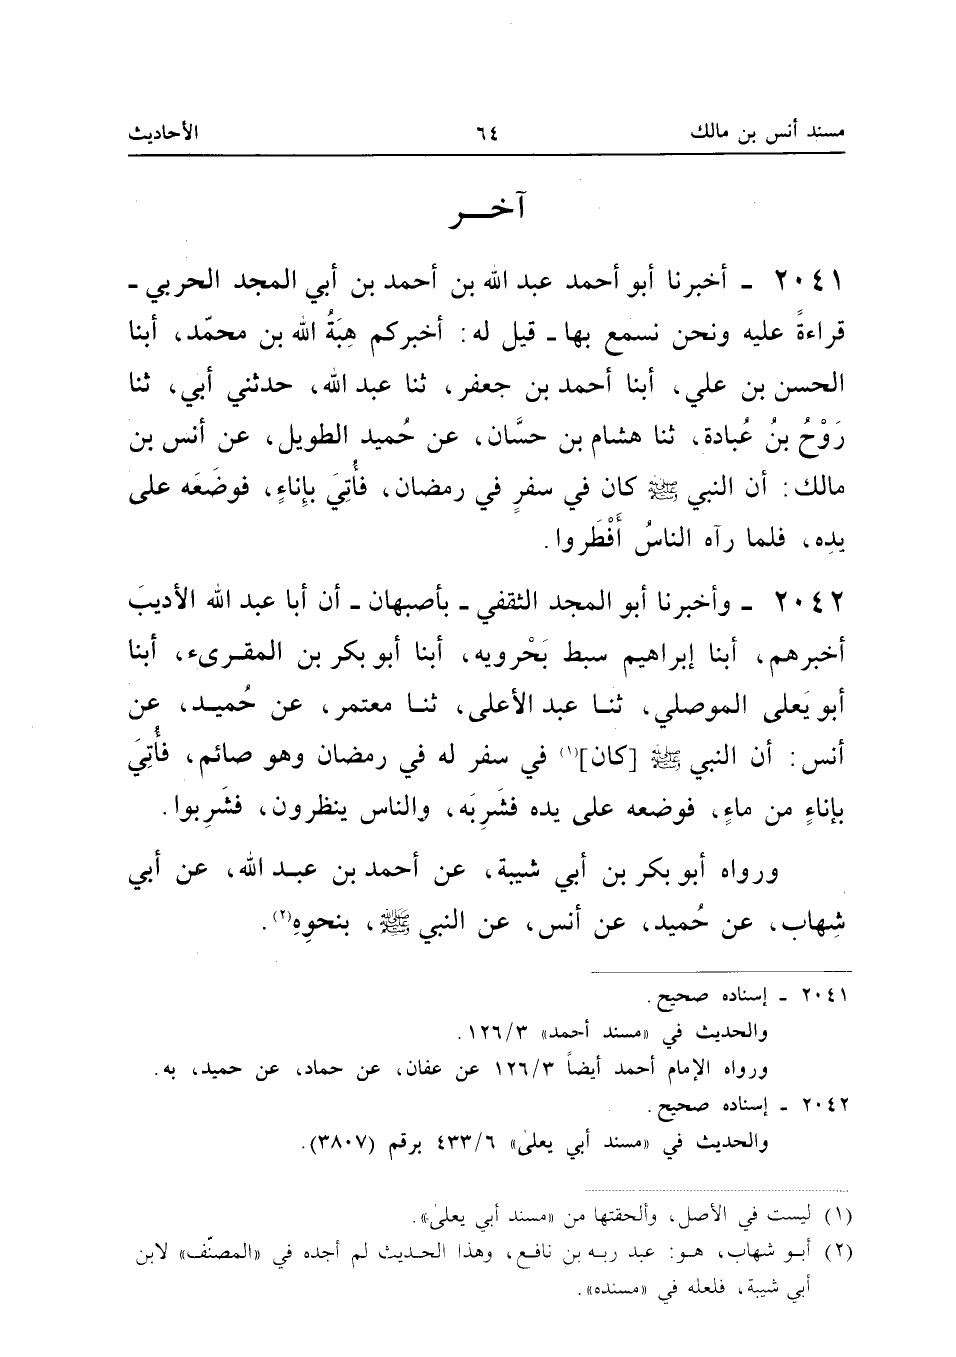 مسند أنس بن مالك ٦٤ الأحاديث
آخـــر
٢٠٤١ ـ أخبرنا أبو أحمد عبد الله بن أحمد بن أبي المجد الحربي ـ
قراءةً عليه ونحن نسمع بها ـ قيل له: أخبركم هِبَةُ الله بن محمّد، أبنا
الحسن بن علي، أبنا أحمد بن جعفر، ثنا عبد الله، حدثني أبي، ثنا
رَوْحُ بنُ عُبادة، ثنا هشام بن حسَّان، عن حُميد الطويل، عن أنس بن
مالك: أن النبي ﷺ كان في سفرٍ في رمضان، فأُتِيَ بإِناءٍ، فوضَعَه على
يدِه، فلما رآه الناسُ أَفْطَروا.
٢٠٤٢ ـ وأخبرنا أبو المجد الثقفي ـ بأصبهان ـ أن أبا عبد الله الأديبَ
أخبرهم، أبنا إبراهيم سبط بَحْرويه، أبنا أبو بكر بن المقرىء، أبنا
أبو يَعلى الموصلي، ثنـا عبد الأعلى، ثنـا معتمر، عن حُميـد، عن
أنس: أن النبي ﷺ [كان](١) في سفر له في رمضان وهو صائم، فأُتِيَ
بإناءٍ من ماءٍ، فوضعه على يده فشَرِبَه، والناس ينظرون، فشَرِبوا.
ورواه أبو بكر بن أبي شيبة، عن أحمد بن عبـد الله، عن أبي
شِهاب، عن حُميد، عن أنس، عن النبي ﷺ، بنحوِهِ(٢).
٢٠٤١ ـ إسناده صحيح.
والحديث في «مسند أحمد» ١٢٦/٣.
ورواه الإمام أحمد أيضاً ١٢٦/٣ عن عفان، عن حماد، عن حميد، به.
٢٠٤٢ ـ إسناده صحيح.
والحديث في «مسند أبي يعلىٰ» ٤٣٣/٦ برقم (٣٨٠٧).
(١) ليست في الأصل، وألحقتها من «مسند أبي يعلىٰ».
(٢) أبـو شهاب، هو: عبد ربـه بن نافـع، وهذا الحـديث لم أجده في «المصنّف» لابن
أبي شيبة، فلعله في «مسنده».